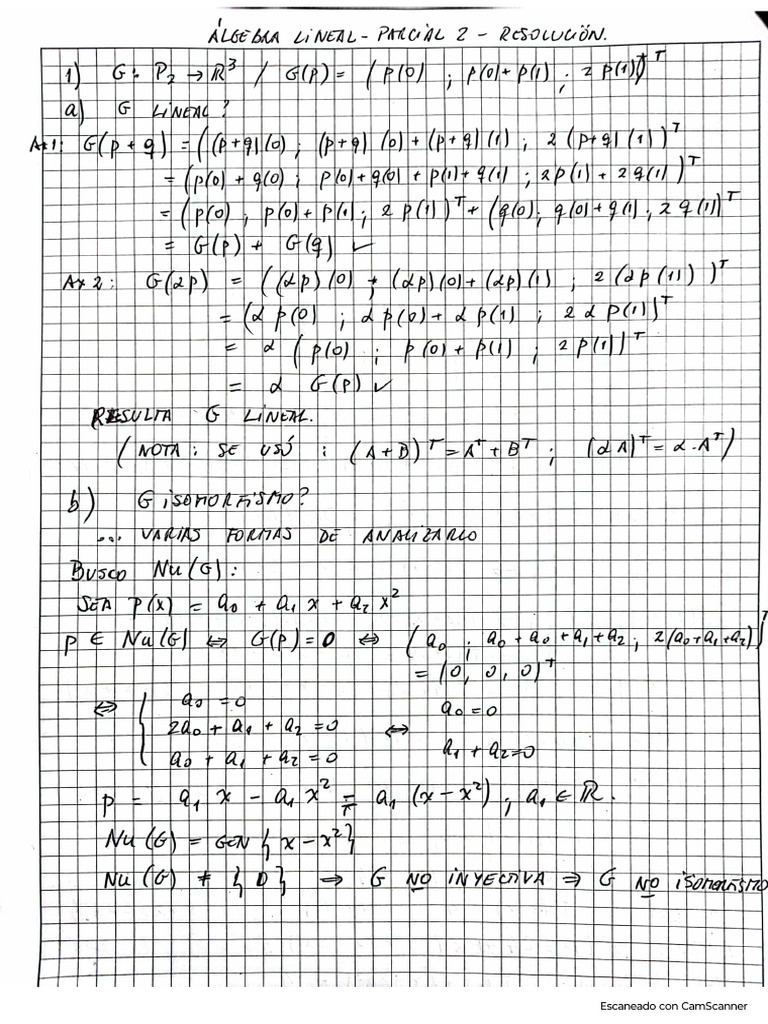 ÁLGEBRA LINEAL - PARCIAL 2 - RESOLUCIÓN.
1) G: P₂ → ℝ³ / G(p) = (p(0) ; p(0)+p(1) ; 2 p(1))ᵀ
a) G LINEAL?
Ax1: G(p+q) = ((p+q)(0) ; (p+q)(0) + (p+q)(1) ; 2 (p+q)(1))ᵀ
= (p(0) + q(0) ; p(0)+q(0) + p(1)+q(1) ; 2p(1) + 2q(1))ᵀ
= (p(0) ; p(0)+p(1) ; 2 p(1))ᵀ + (q(0) ; q(0)+q(1) ; 2 q(1))ᵀ
= G(p) + G(q) ✓
Ax2: G(αp) = ((αp)(0) ; (αp)(0)+(αp)(1) ; 2 (αp(1)) )ᵀ
= (α p(0) ; α p(0) + α p(1) ; 2 α p(1))ᵀ
= α (p(0) ; p(0) + p(1) ; 2 p(1))ᵀ
= α G(p) ✓
RESULTA G LINEAL.
(NOTA: SE USÓ : (A+B)ᵀ = Aᵀ + Bᵀ ; (αA)ᵀ = α·Aᵀ)
b) G ISOMORFISMO?
... VARIAS FORMAS DE ANALIZARLO
BUSCO Nu(G):
SEA p(x) = a₀ + a₁ x + a₂ x²
p ∈ Nu(G) ⇔ G(p) = 0 ⇔ (a₀ ; a₀ + a₀ + a₁ + a₂ ; 2(a₀+a₁+a₂))ᵀ
= (0, 0, 0)ᵀ
⇔ { a₀ = 0 a₀ = 0
2a₀ + a₁ + a₂ = 0 ⇔
a₀ + a₁ + a₂ = 0 a₁ + a₂ = 0
p = a₁ x - a₁ x² = a₁ (x - x²) ; a₁ ∈ ℝ.
Nu(G) = GEN { x - x² }
Nu(G) ≠ { 0 } ⇒ G NO INYECTIVA ⇒ G NO ISOMORFISMO
Escaneado con CamScanner